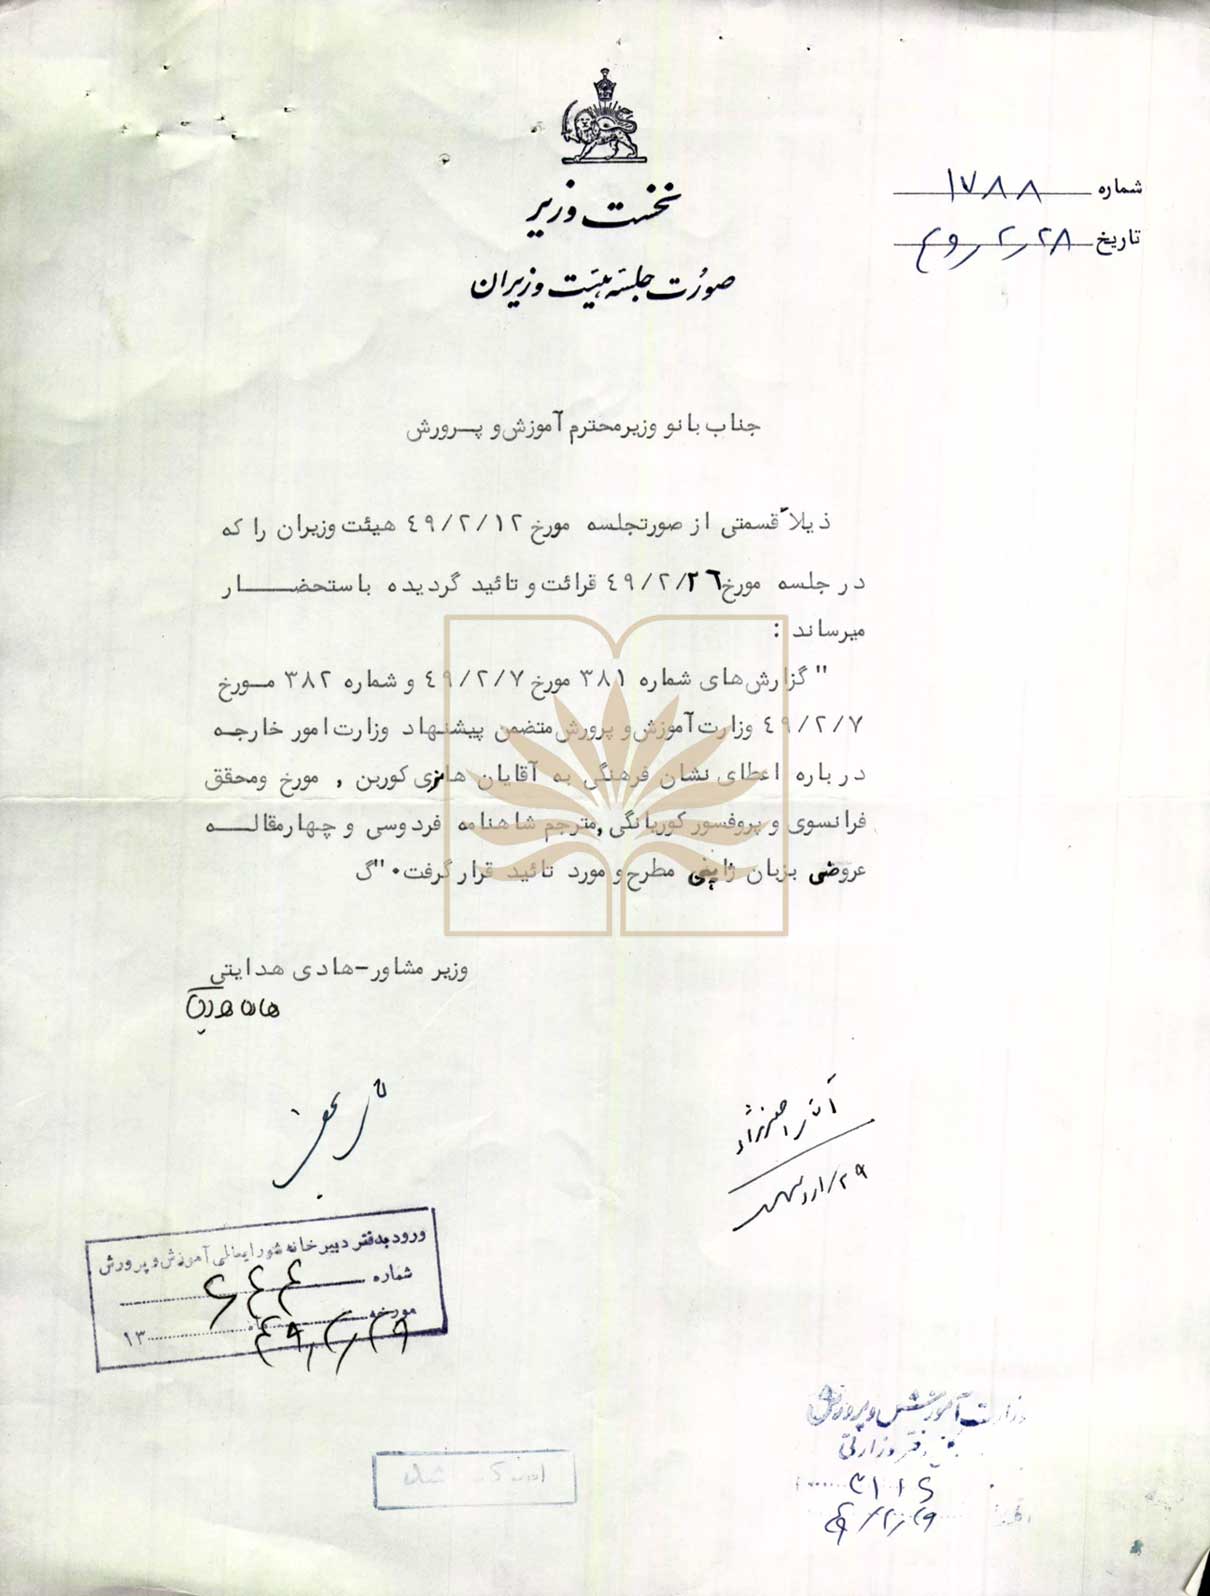 شماره ۱۷۸۸
تاریخ ۴۹/۲/۲۸
نخست وزیر
صورت جلسه هیئت وزیران
جناب بانو وزیر محترم آموزش و پرورش
ذیلاً قسمتی از صورتجلسه مورخ ۴۹/۲/۱۲ هیئت وزیران را که
در جلسه مورخ ۴۹/۲/۲۶ قرائت و تائید گردیده باستحضار
میرساند :
" گزارش‌های شماره ۳۸۱ مورخ ۴۹/۲/۷ و شماره ۳۸۲ مورخ
۴۹/۲/۷ وزارت آموزش و پرورش متضمن پیشنهاد وزارت امور خارجه
درباره اعطای نشان فرهنگی به آقایان هانری کوربن , مورخ ومحقق
فرانسوی و پروفسور کوریانگی , مترجم شاهنامه فردوسی و چهارمقاله
عروضی بزبان ژاپنی مطرح و مورد تائید قرار گرفت۰ "گ
وزیر مشاور-هادی هدایتی
۲۹/اردیبهشت
ورود بدفتر دبیرخانه شورایعالی آموزش و پرورش
شماره
مورخه ۴۹/۲/۲۹ ۱۳
وزارت آموزش و پرورش
دفتر وزارتی
۴۹/۲/۲۹